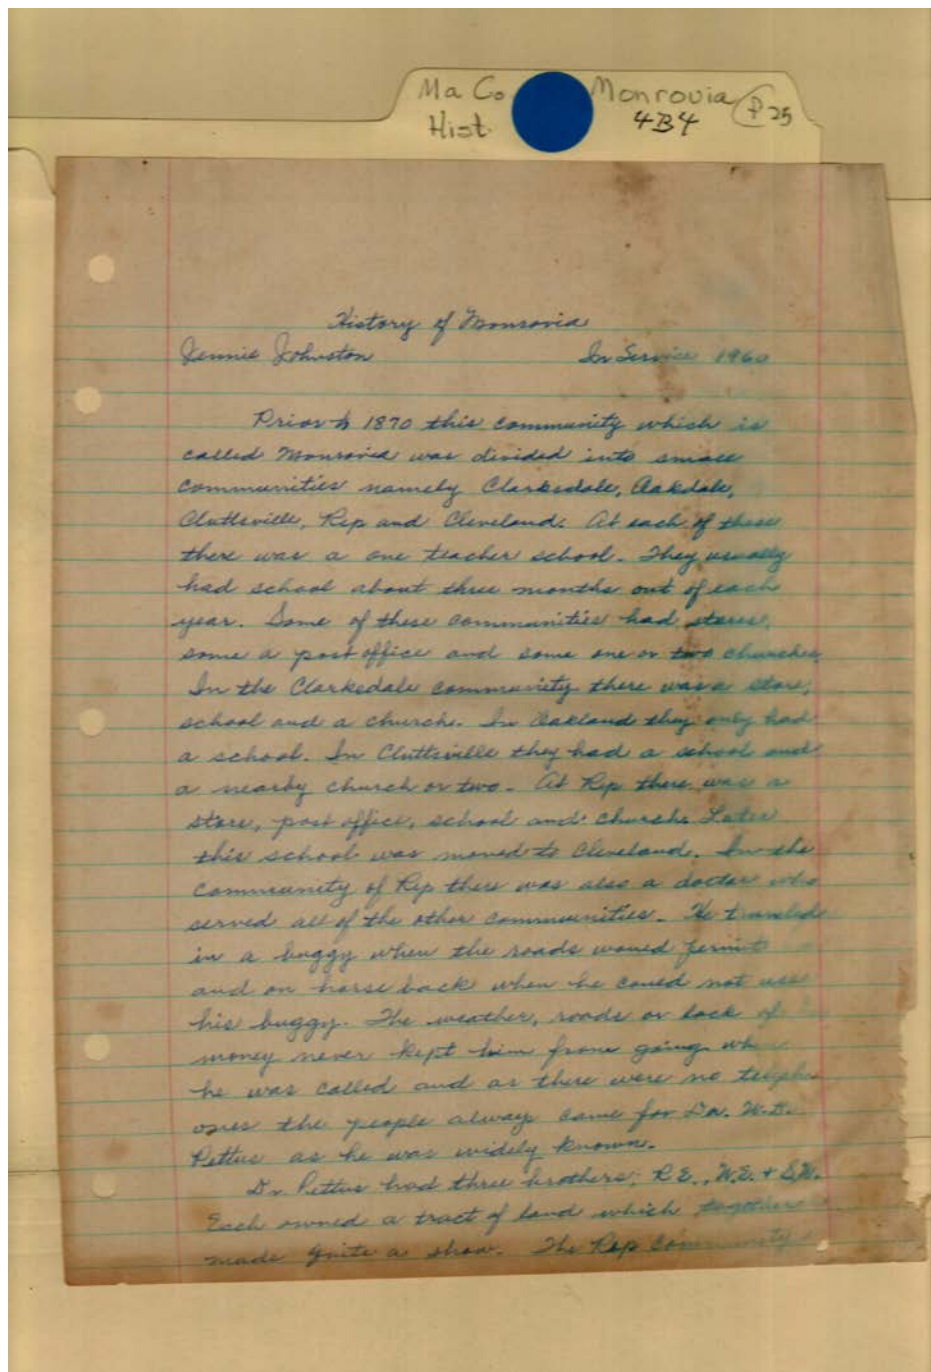 Ma Co Monrovia P25
Hist. 4B4
History of Monrovia
Jennie Johnston In Service 1960
Prior to 1870 this community which is
called Monrovia was divided into small
communities namely Clarkedale, Oakdale,
Cluttsville, Rep and Cleveland. At each of these
there was a one teacher school. They usually
had school about three months out of each
year. Some of these communities had stores,
some a post office and some one or two churches.
In the Clarkedale community there was a store,
school and a church. In Oakland they only had
a school. In Cluttsville they had a school and
a nearby church or two. At Rep there was a
store, post office, school and church. Later
this school was moved to Cleveland. In the
community of Rep there was also a doctor who
served all of the other communities. He traveled
in a buggy when the roads would permit
and on horse back when he could not use
his buggy. The weather, roads or lack of
money never kept him from going when
he was called and as there were no teleph-
ones the people always came for Dr. W.D.
Pettus as he was widely known.
Dr. Pettus had three brothers; R.E., W.E. + S.W.
Each owned a tract of land which together
made quite a show. The Rep Community